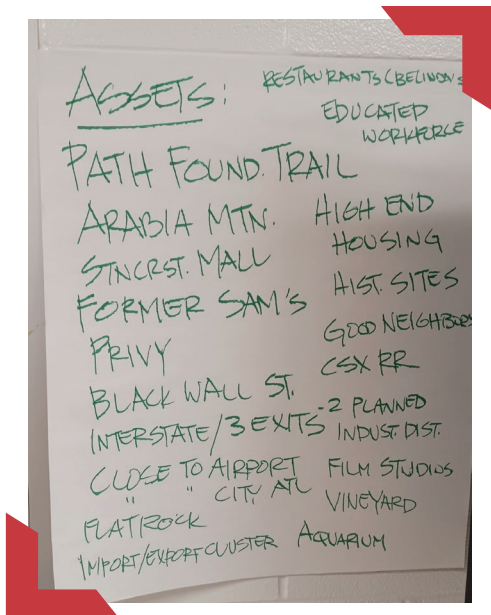 ASSETS:
PATH FOUND. TRAIL
ARABIA MTN.
STNCRST. MALL
FORMER SAM'S
PRIVY
BLACK WALL ST.
INTERSTATE/3 EXITS
CLOSE TO AIRPORT
" " CITY ATL
FLATROCK
IMPORT/EXPORT CLUSTER
RESTAURANTS (BELINDA'S
EDUCATED
WORKFORCE
HIGH END
HOUSING
HIST. SITES
GOOD NEIGHBORS
CSX RR
-2 PLANNED
INDUST. DIST.
FILM STUDIOS
VINEYARD
AQUARIUM